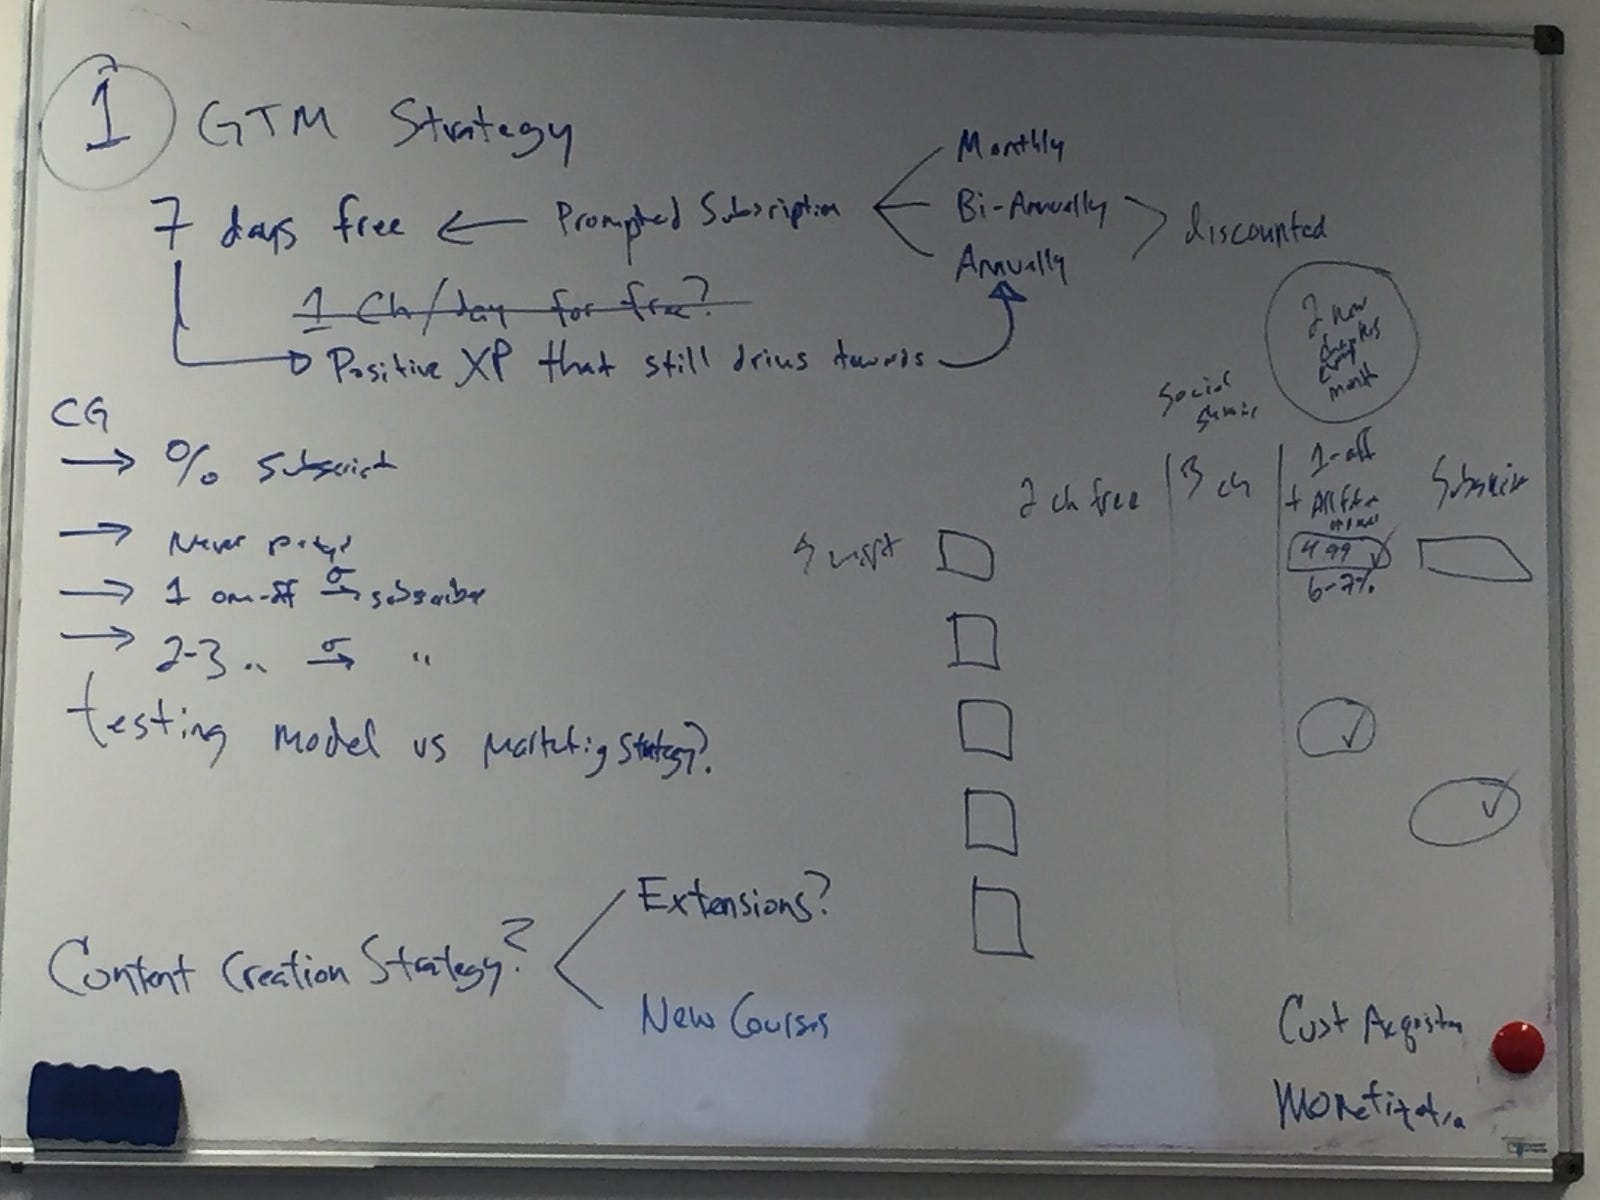 1 GTM Strategy
7 days free ← Prompted Subscription
Monthly
Bi-Annually
Annually
discounted
1 Ch/day for free?
Positive XP that still drives towards
CG
→ % Subscript
→ Never
→ 1 one-off → subscriber
→ 2-3 " → "
testing model vs Marketing Strategy?
Content Creation Strategy?
Extensions?
New Courses
2 new
chapters
every
month
Social
2 ch free
3 ch
1-off
+ All
4.99 ✓
6-7%
Cust Acquisition
Monetization